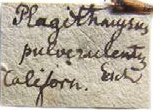 Plagithmysus
pulverulentus
Californ. Esch